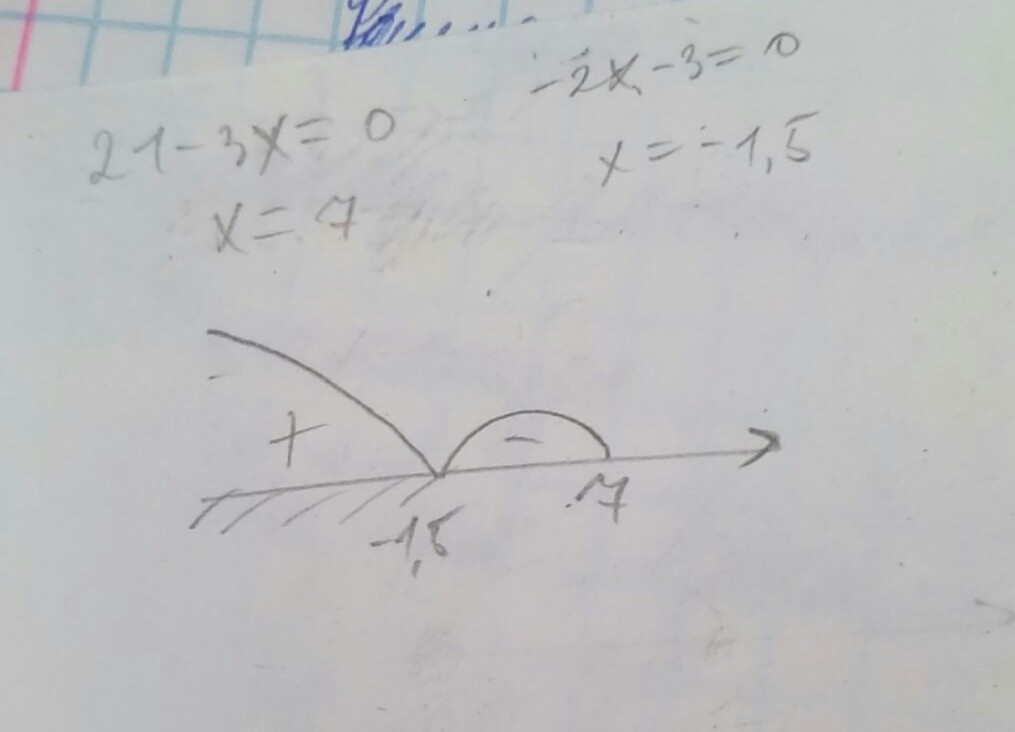 -2x-3=0
21-3x=0
x=-1,5
x=7
+
-
-1,5
7